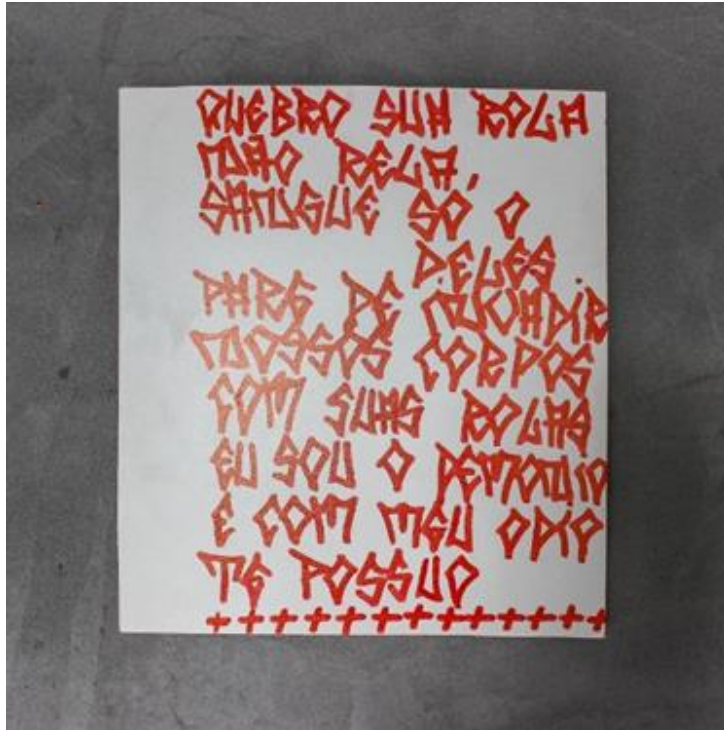 QUEBRO SUA ROLA
NÃO RELA,
SANGUE SÓ O
DELES.
PARE DE INVADIR
NOSSOS CORPOS
COM SUAS ROLAS
EU SOU O DEMONIO
E COM MEU ODIO
TE POSSUO
+++++++++++++